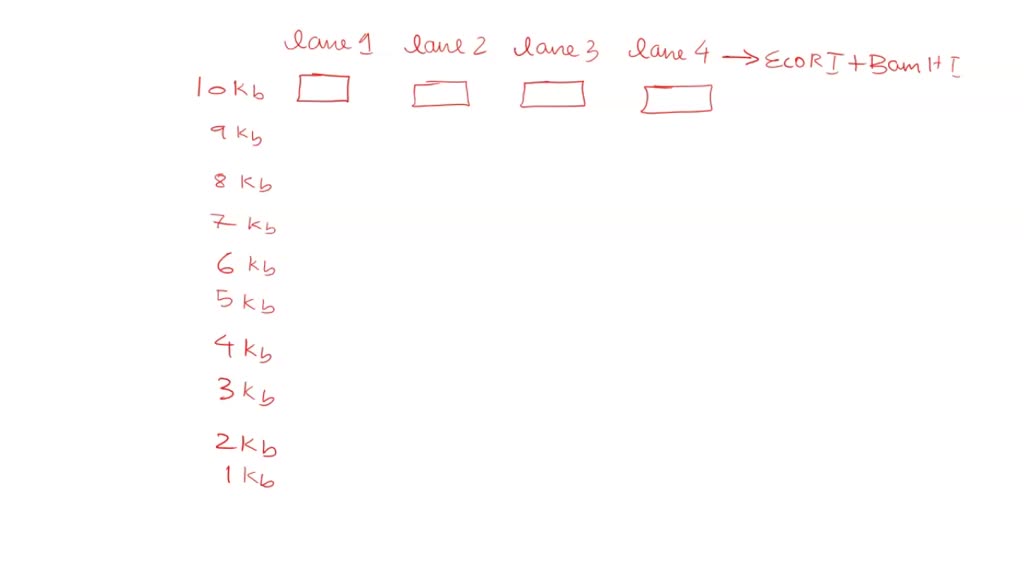 lane 1 lane 2 lane 3 lane 4 → EcoRI + BamHI
10 Kb
9 Kb
8 Kb
7 Kb
6 Kb
5 Kb
4 Kb
3 Kb
2 Kb
1 Kb